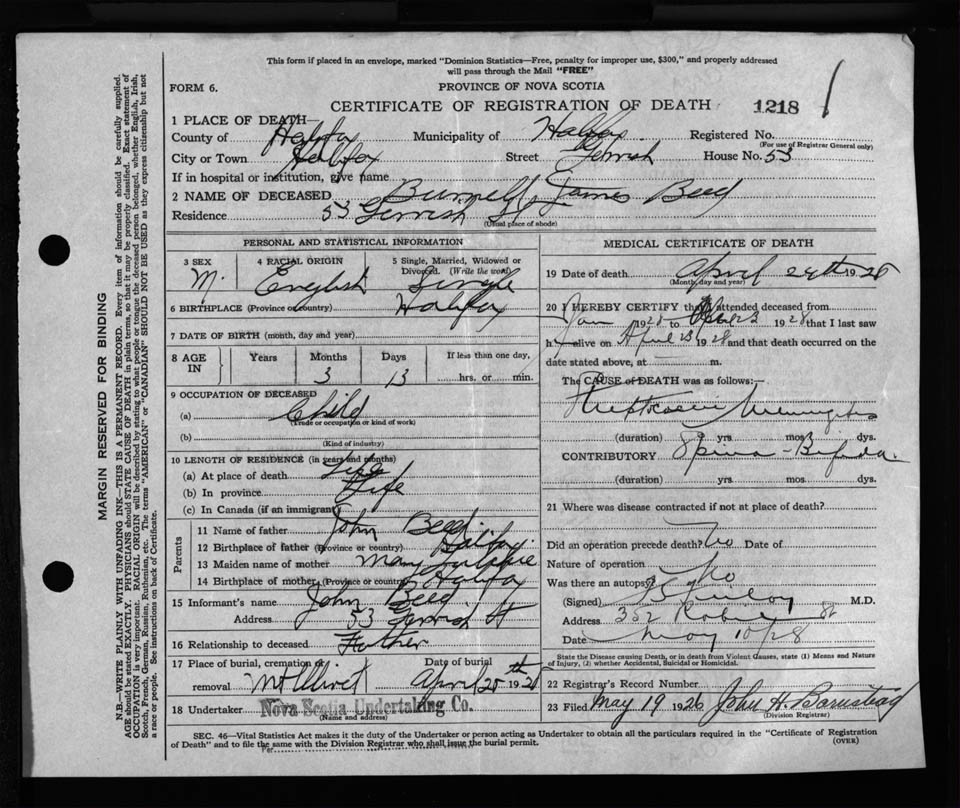 This form if placed in an envelope, marked "Dominion Statistics—Free, penalty for improper use, $300," and properly addressed
will pass through the Mail "FREE"
FORM 6.
PROVINCE OF NOVA SCOTIA
CERTIFICATE OF REGISTRATION OF DEATH 1218
1 PLACE OF DEATH—
County of Halifax Municipality of Halifax Registered No.
(For use of Registrar General only)
City or Town Halifax Street Gerrish House No. 53
If in hospital or institution, give name
2 NAME OF DECEASED James Beed
Residence 53 Gerrish St
(Usual place of abode)
PERSONAL AND STATISTICAL INFORMATION
3 SEX 4 RACIAL ORIGIN 5 Single, Married, Widowed or
Divorced. (Write the word)
M. English Single
6 BIRTHPLACE (Province or country) Halifax
7 DATE OF BIRTH (month, day and year)
8 AGE IN Years Months Days If less than one day,
3 13 hrs. or min.
9 OCCUPATION OF DECEASED
(a) Child
(Trade or occupation or kind of work)
(b)
(Kind of industry)
10 LENGTH OF RESIDENCE (in years and months)
(a) At place of death Life
(b) In province Life
(c) In Canada (if an immigrant)
Parents
11 Name of father John Beed.
12 Birthplace of father (Province or country) Halifax.
13 Maiden name of mother Mary
14 Birthplace of mother (Province or country) Halifax
15 Informant's name John Beed
Address 53 Gerrish St
16 Relationship to deceased Father
17 Place of burial, cremation or Date of burial
removal Mt Olivet April 25th 1928
18 Undertaker Nova Scotia Undertaking Co.
(Name and address)
MEDICAL CERTIFICATE OF DEATH
19 Date of death April 24th 1928
(Month, day and year)
20 I HEREBY CERTIFY that I attended deceased from
Jan 1928 to 23 1928 that I last saw
h alive on April 23 1928 and that death occurred on the
date stated above, at m.
The CAUSE OF DEATH was as follows:—
Meningitis
(duration) yrs mos 3 dys.
CONTRIBUTORY Spina-Bifida.
(duration) yrs mos dys.
21 Where was disease contracted if not at place of death?
Did an operation precede death? No Date of
Nature of operation
Was there an autopsy? No
(Signed) M.D.
Address 352 Robie St
Date May 10/28
State the Disease causing Death, or in death from Violent Causes, state (1) Means and Nature
of Injury, (2) whether Accidental, Suicidal or Homicidal.
22 Registrar's Record Number
23 Filed May 19 1928 John H. Barnstead
(Division Registrar)
SEC. 46—Vital Statistics Act makes it the duty of the Undertaker or person acting as Undertaker to obtain all the particulars required in the "Certificate of Registration
of Death" and to file the same with the Division Registrar who shall issue the burial permit. (OVER)
Per
MARGIN RESERVED FOR BINDING
N.B.—WRITE PLAINLY WITH UNFADING INK—THIS IS A PERMANENT RECORD. Every item of information should be carefully supplied.
AGE should be stated EXACTLY. PHYSICIANS should STATE CAUSE OF DEATH in plain terms, so that it may be properly classified. Exact statement of
OCCUPATION is very important. RACIAL ORIGIN will be described by stating to what people or tongue the deceased person belonged, whether English, Irish,
Scotch, French, German, Russian, Ruthenian, etc. The terms "AMERICAN" or "CANADIAN" SHOULD NOT BE USED as they express citizenship but not
a race or people. See instructions on back of Certificate.